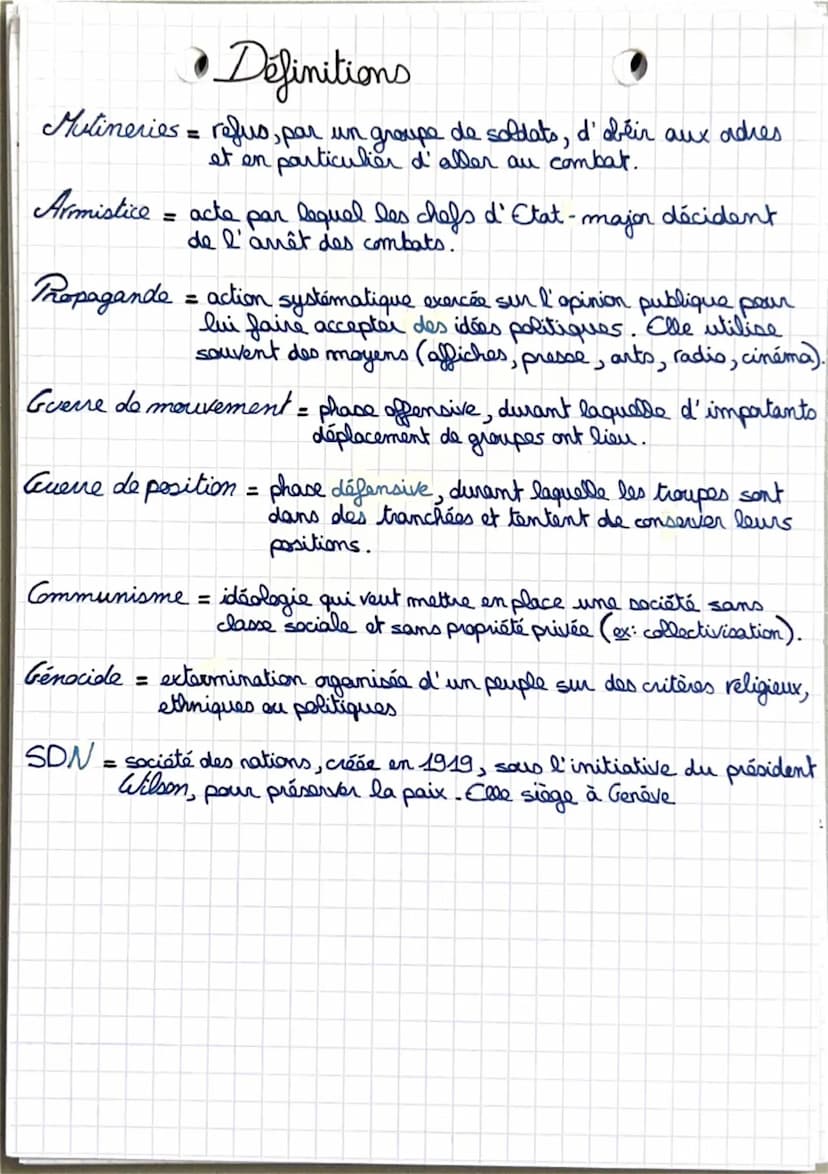 Définitions
Mutineries = refus, par un groupe de soldats, d'obéir aux odres
et en particulier d'aller au combat.
Armistice = acte par lequel les chefs d'Etat-major décident
de l'arrêt des combats.
Propagande = action systématique exercée sur l'opinion publique pour
lui faire accepter des idées politiques. Elle utilise
souvent des moyens (affiches, presse, arts, radio, cinéma).
Guerre de mouvement = phase offensive, durant laquelle d'importants
déplacement de groupes ont lieu.
Guerre de position = phase défensive, durant laquelle les troupes sont
dans des tranchées et tentent de conserver leurs
positions.
Communisme = idéologie qui veut mettre en place une société sans
classe sociale et sans propriété privée (ex: collectivisation).
Génocide = extermination organisée d'un peuple sur des critères religieux,
ethniques ou politiques
SDN = société des nations, créée en 1919, sous l'initiative du président
Wilson, pour préserver la paix. Elle siège à Genève